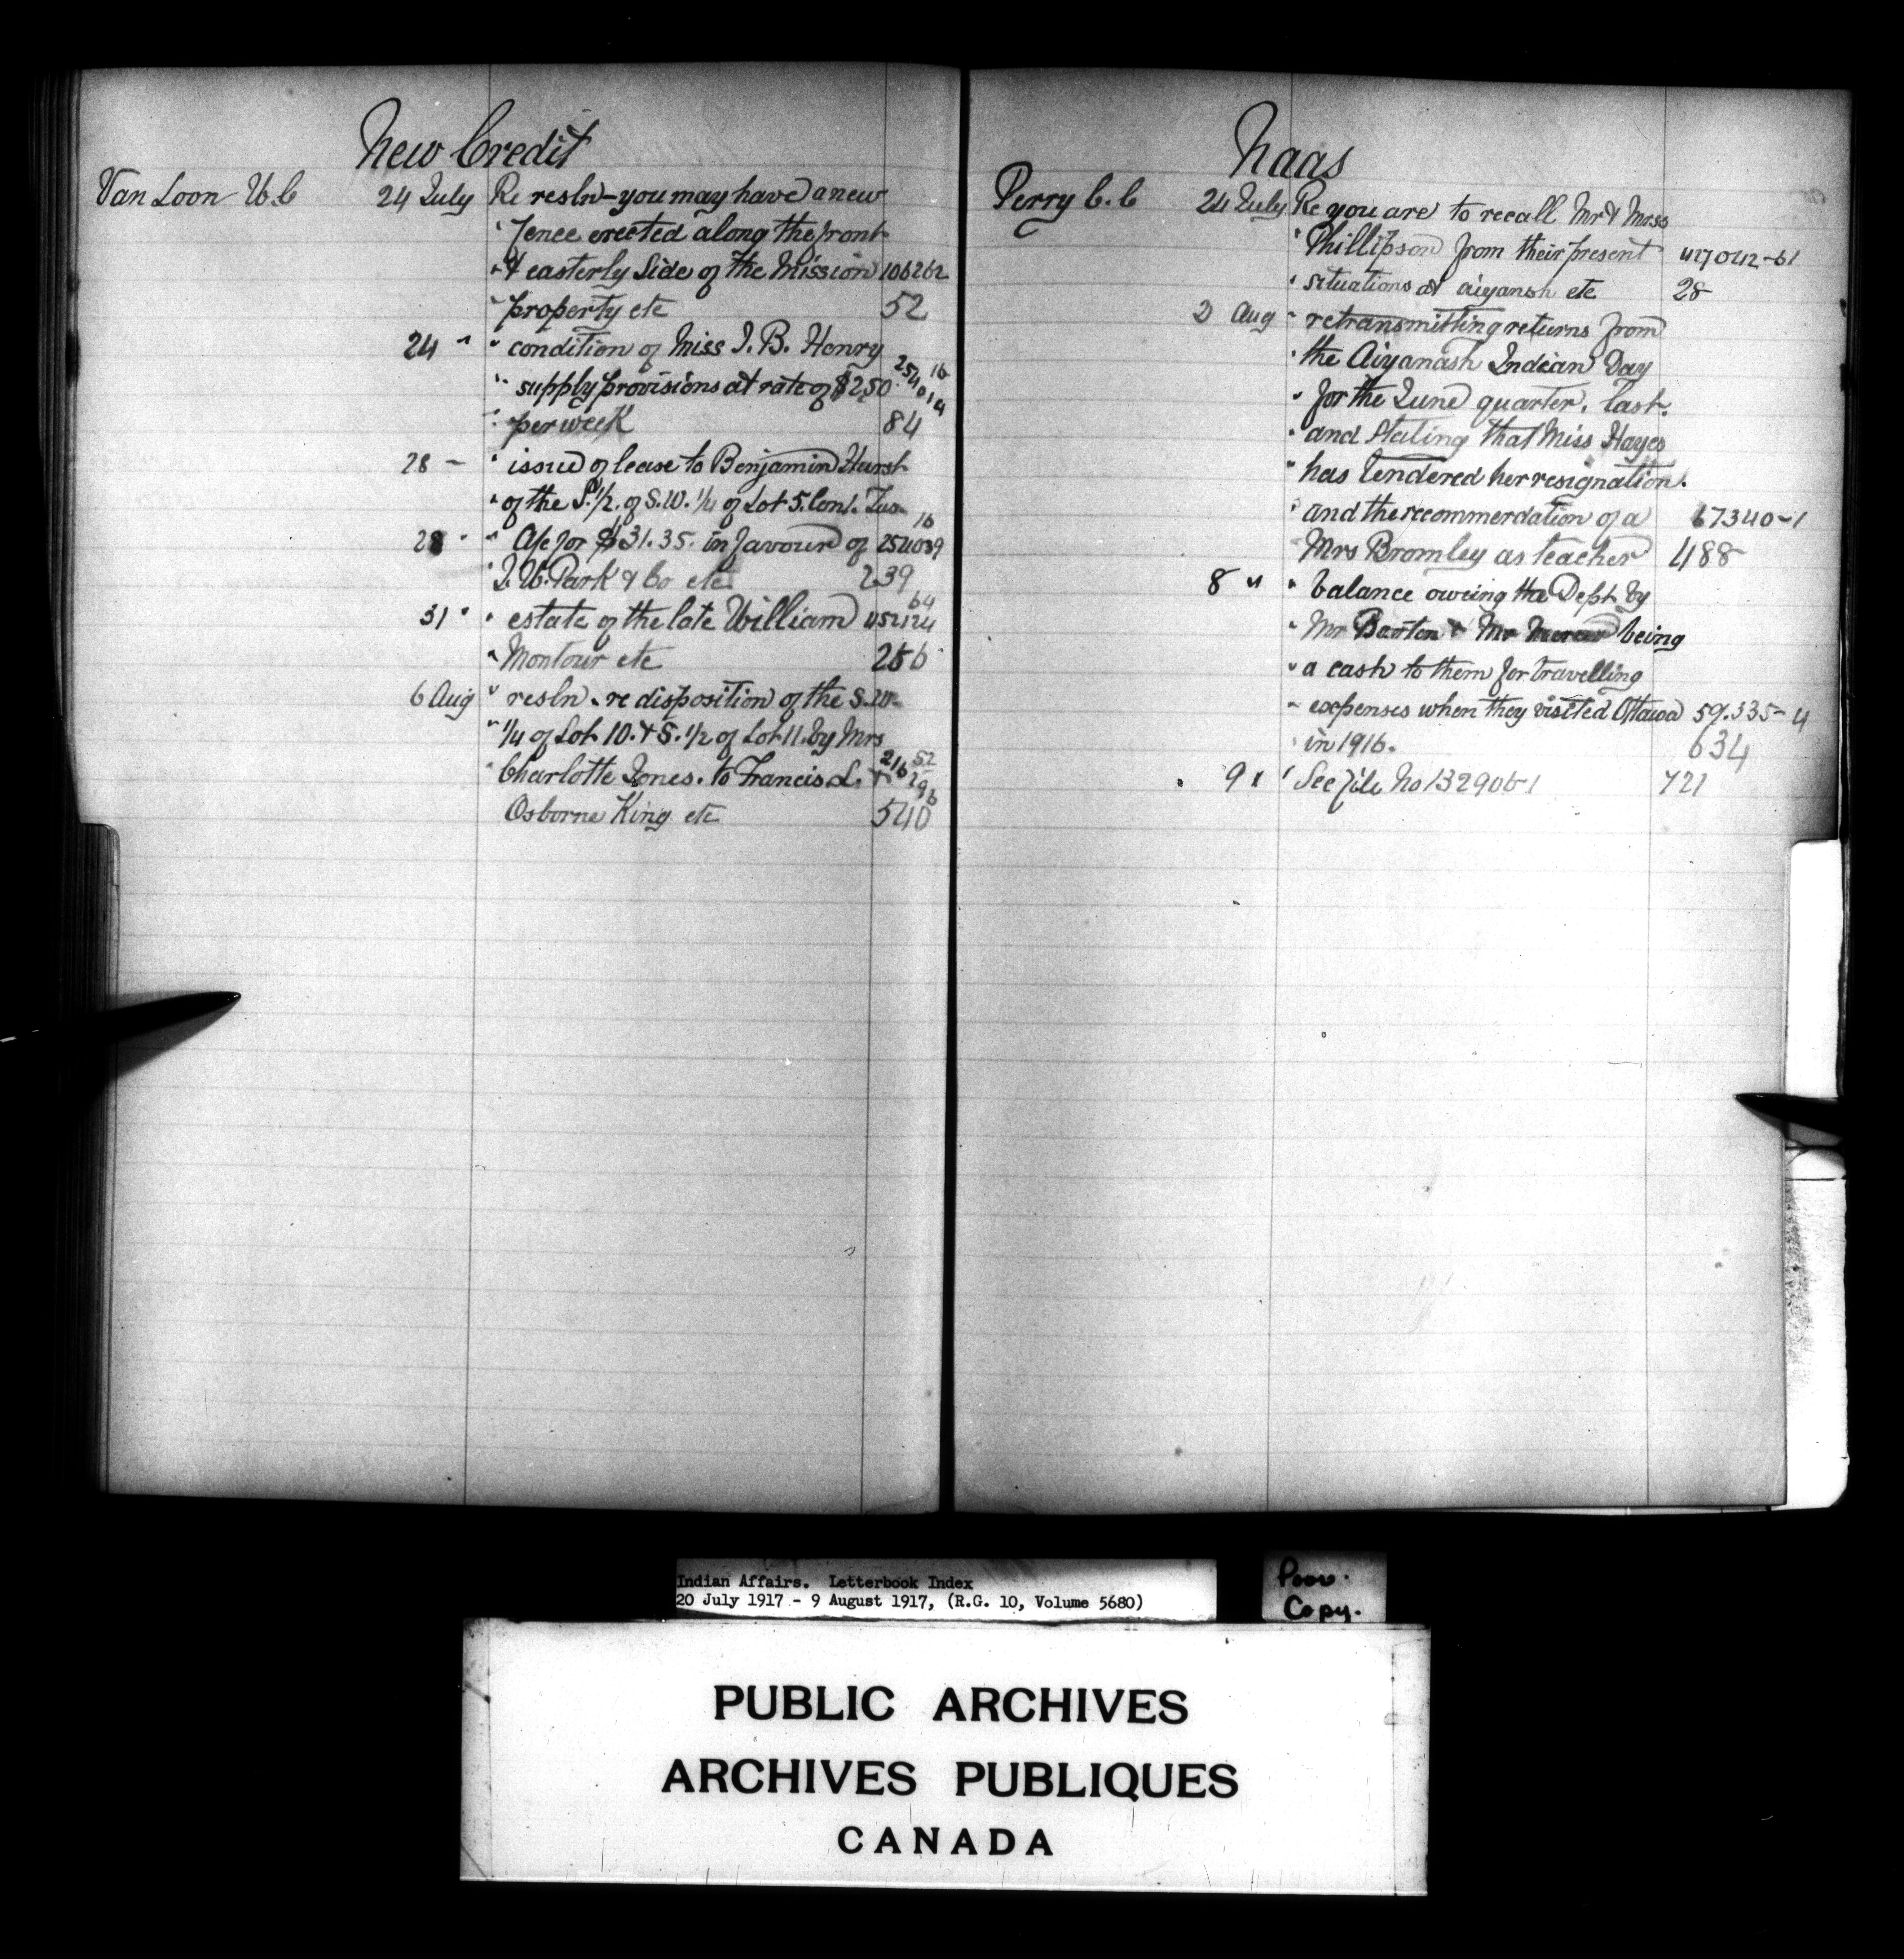 New Credit
Van Loon W.C 24 July Re resln - you may have a new
" fence erected along the front
" & easterly Side of the Mission 106262
" property etc 52
24 " " condition of Miss J. B. Henry
" supply provisions at rate of $2.50 254014 16
" per week 84
28 - " issue of lease to Benjamin Hurst
" of the S.1/2. of S.W. 1/4 of Lot 5. Con1. Tus 16
28 " " A/c for $31.35. in favour of 254039
" J. W. Park & Co etc 239
31 " " estate of the late William 452124 64
" Montour etc 256
6 Aug " resln. re disposition of the S.W.
" 1/4 of Lot 10. & S. 1/2 of Lot 11. by Mrs
" Charlotte Jones. to Francis L. & 216 52
Osborne King etc 540
Naas
Perry C. C 24 July Re you are to recall Mr & Mrss
" Phillipson from their present 427042-61
" situations at aiyansh etc 28
2 Aug " retransmitting returns from
" the Aiyanash Indian Day
" for the June quarter. last.
" and Stating that Miss Hayes
" has tendered her resignation.
" and the recommerdation of a 67340-1
Mrs Bromley as teacher 488
8 " " balance oweing the Dept by
" Mr Barton & Mr being
" a cash to them for travelling
" expenses when they visited Ottawa 59.335-4
" in 1916. 634
" 9 " " See file No 132906-1 721
Indian Affairs. Letterbook Index
20 July 1917 - 9 August 1917, (R.G. 10, Volume 5680)
Poor.
Copy.
PUBLIC ARCHIVES
ARCHIVES PUBLIQUES
CANADA